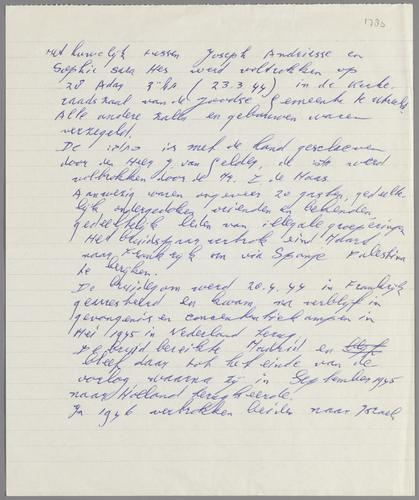 1780
Het huwelijk tussen Joseph Andriesse en
Sophie Sara Hes werd voltrokken op
28 Adar (23.3.44) in de kerke-
raadszaal van de Joodse Gemeente te Utrecht.
Alle andere zalen en gebouwen waren
verzegeld.
De is met de hand geschreven
door den Heer J. van Gelder, de werd
voltrokken door de Hr. I. de Haas.
Aanwezig waren ongeveer 20 gasten, gedeelte-
lijk ondergedoken vrienden en bekenden,
gedeeltelijk leden van illegale groeperingen
Het bruidspaar vertrok eind Maart
naar Frankrijk om via Spanje Palestina
te bereiken.
De bruidegom werd 20.4.44 in Frankrijk
gearresteerd en kwam, na verblijf in
gevangenis en concentratiekampen in
Mei 1945 in Nederland terug.
De bruid bereikte Madrid en
bleef daar tot het einde van de
oorlog waarna zij in September 1945
naar Holland terugkeerde.
In 1946 vertrokken beiden naar Israel